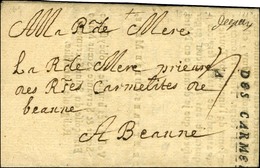 A La Rde Mere
La Rde Mere prieure
des Rtes Carmelites de
beaune
A Beaune
DES CARME